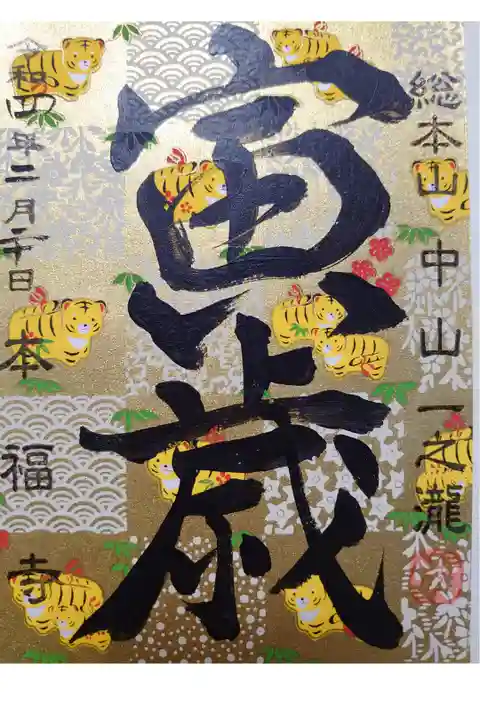 総本山中山一之瀧
寅歳
令和四年二月二十日
本福寺